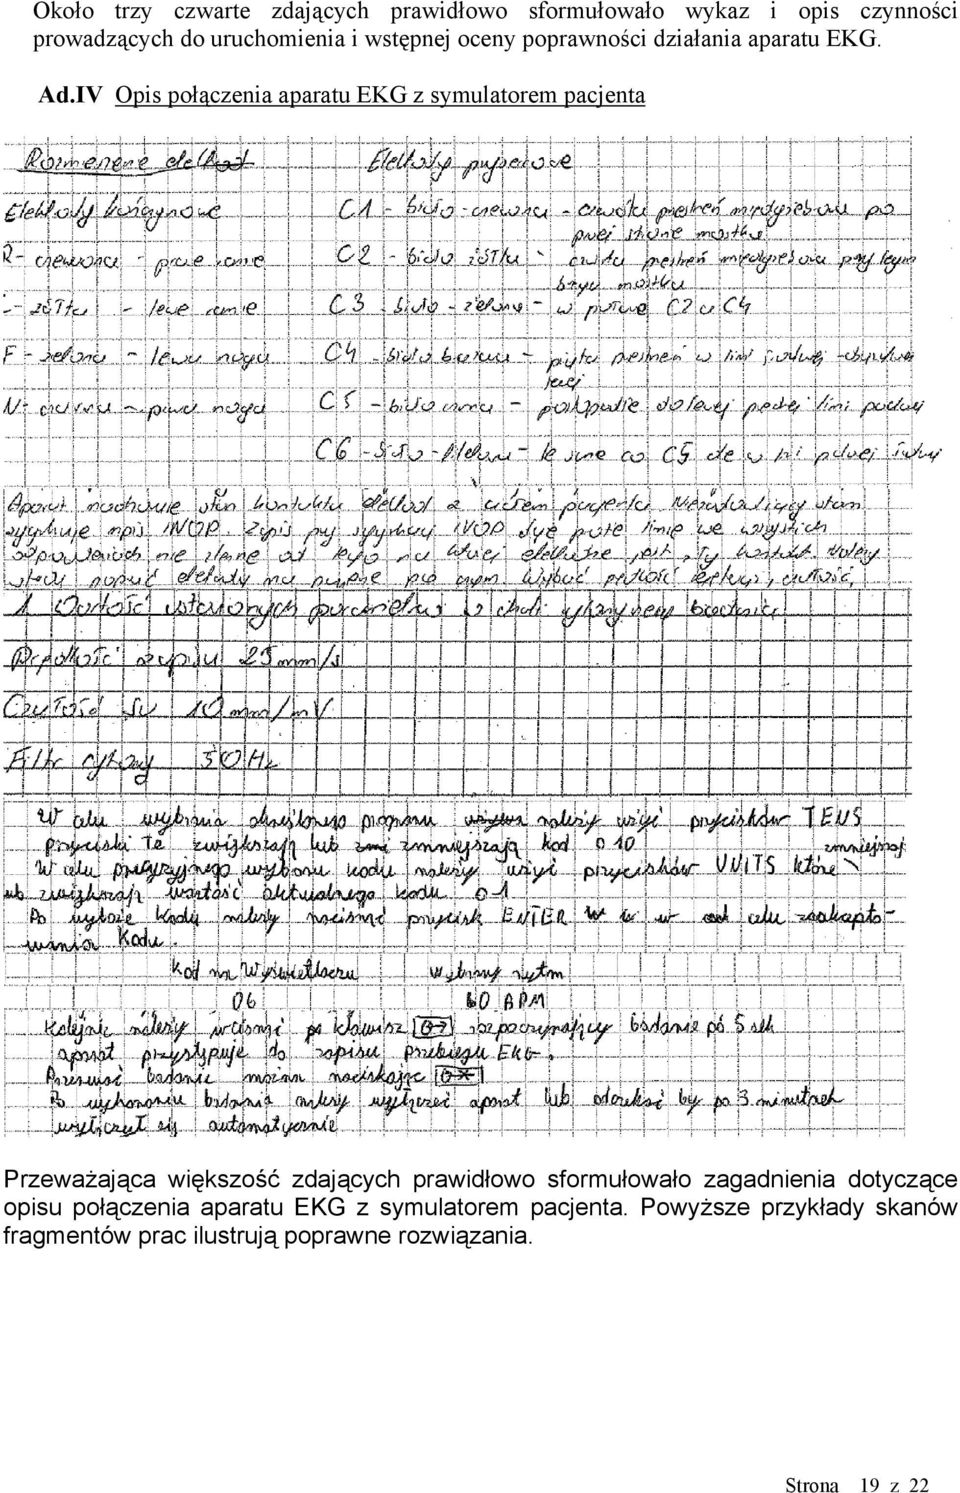 Około trzy czwarte zdających prawidłowo sformułowało wykaz i opis czynności
prowadzących do uruchomienia i wstępnej oceny poprawności działania aparatu EKG.
Ad.IV Opis połączenia aparatu EKG z symulatorem pacjenta
Elektrody kończynowe
R - czerwona - prawe ramie
- żółta - lewe ramie
F - zielona - lewa noga
N - czarna - prawa noga
C1 - biało - czerwona - czwarta przestrzeń międzyżebrowa po
prawej stronie mostka
C2 - biało żółta - czwarta przestrzeń międzyżebrowa przy lewym
brzegu mostka
C3 - biało - zielona - w połowie C2 a C4
C4 - biało brązowa - piąta przestrzeń w lini środkowej obojczykowej
lewej
C5 - biało czarna - lewej przedniej lini pachowej
C6 - biało - na C5 ale w lini pachowej środkowej
Aparat kontaktu elektrod z ciałem pacjenta
napis INOP. Zapis przy INOP we wszystkich
1 Wartość ustawionych parametrów w chwili badania
Prędkość zapisu 25 mm/s
Czułość 10 mm/mV
Filtr cyfrowy 50Hz
W celu wybrania określonego programu należy użyć przycisków TENS
przyciski Te zwiększają lub zmniejszają kod o 10 zmniejszaj
W celu precyzyjnego wyboru kodu należy użyć przycisków UNITS które
ub zwiększają wartość aktualnego kodu o 1
Po wyborze kodu należy nacisnąć przycisk ENTER w celu zaakapto-
wania kodu.
Kod na wyświetlaczu wybrany rytm
06 60 BPM
Kolejnie należy wcisnąć klawisz rozpoczynający badanie po 5 sek
aparat przystępuje do zapisu przebiegu EKG.
Przerwać badanie można naciskając
Po wykonaniu badania należy wyłączyć aparat lub odczekać by po 3 minutach
wyłączył się automatycznie
Przeważająca większość zdających prawidłowo sformułowało zagadnienia dotyczące
opisu połączenia aparatu EKG z symulatorem pacjenta. Powyższe przykłady skanów
fragmentów prac ilustrują poprawne rozwiązania.
Strona 19 z 22